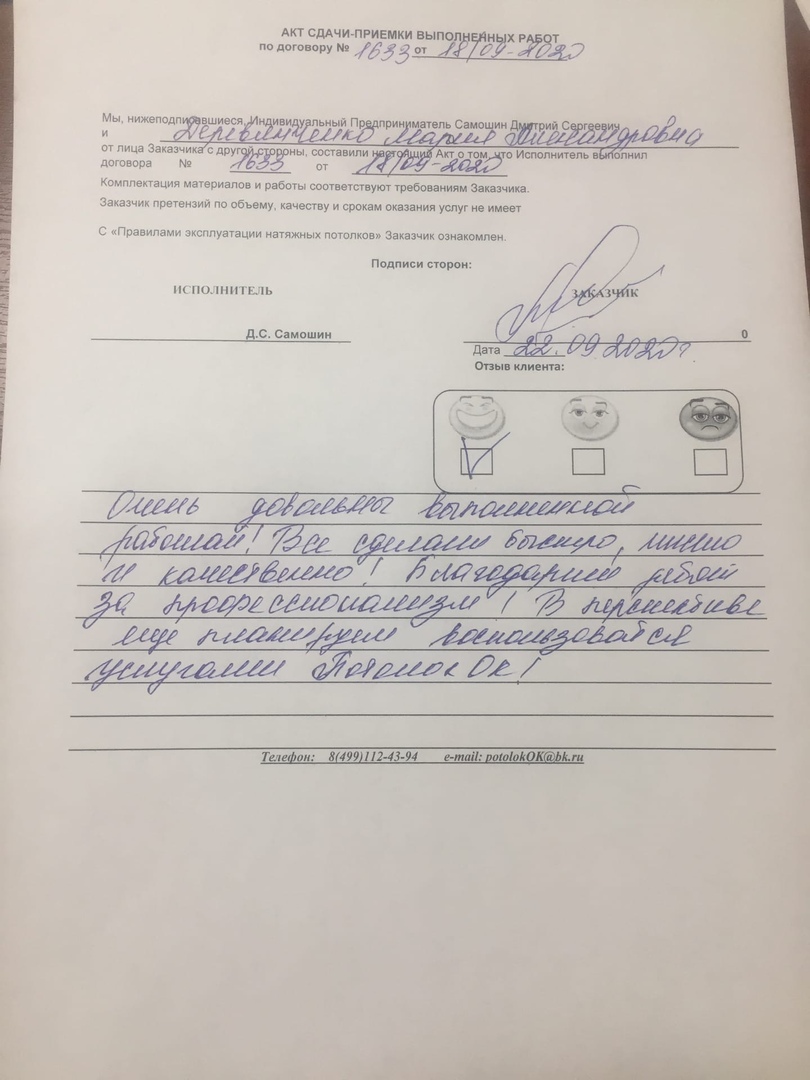 АКТ СДАЧИ-ПРИЕМКИ ВЫПОЛНЕННЫХ РАБОТ
по договору № 1633 от 18/09-2020
Мы, нижеподписавшиеся, Индивидуальный Предприниматель Самошин Дмитрий Сергеевич
и Деревянченко Мария Александровна
от лица Заказчика с другой стороны, составили настоящий Акт о том, что Исполнитель выполнил
договора № 1633 от 18/09-2020
Комплектация материалов и работы соответствуют требованиям Заказчика.
Заказчик претензий по объему, качеству и срокам оказания услуг не имеет
С «Правилами эксплуатации натяжных потолков» Заказчик ознакомлен.
Подписи сторон:
ИСПОЛНИТЕЛЬ ЗАКАЗЧИК
Д.С. Самошин 0
Дата 22.09.2020г
Отзыв клиента:
Очень довольны выполненной
работай! Все сделали быстро, чисто
и качественно! Благодарим ребят
за профессионализм! В перспективе
еще планируем воспользоваться
услугами ПотолокОк!
Телефон: 8(499)112-43-94 e-mail: potolokOK@bk.ru